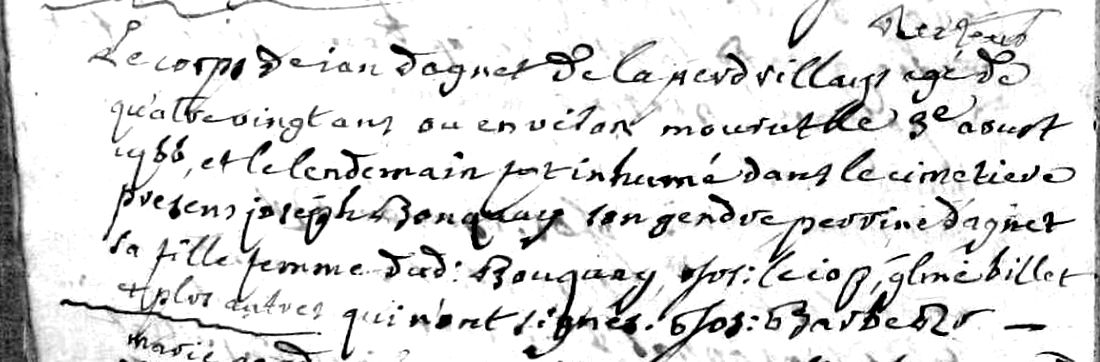 Le corps de ian dagnet de la perdrillays agé de
quatre vingt ans ou environ mourut le 3e aoust
et le lendemain fut inhumé dans le cimetiere
presens joseph Bouquay son gendre perrine dagnet
sa fille femme dud: Bouquay, billet
et plus autres qui n'ont signés.